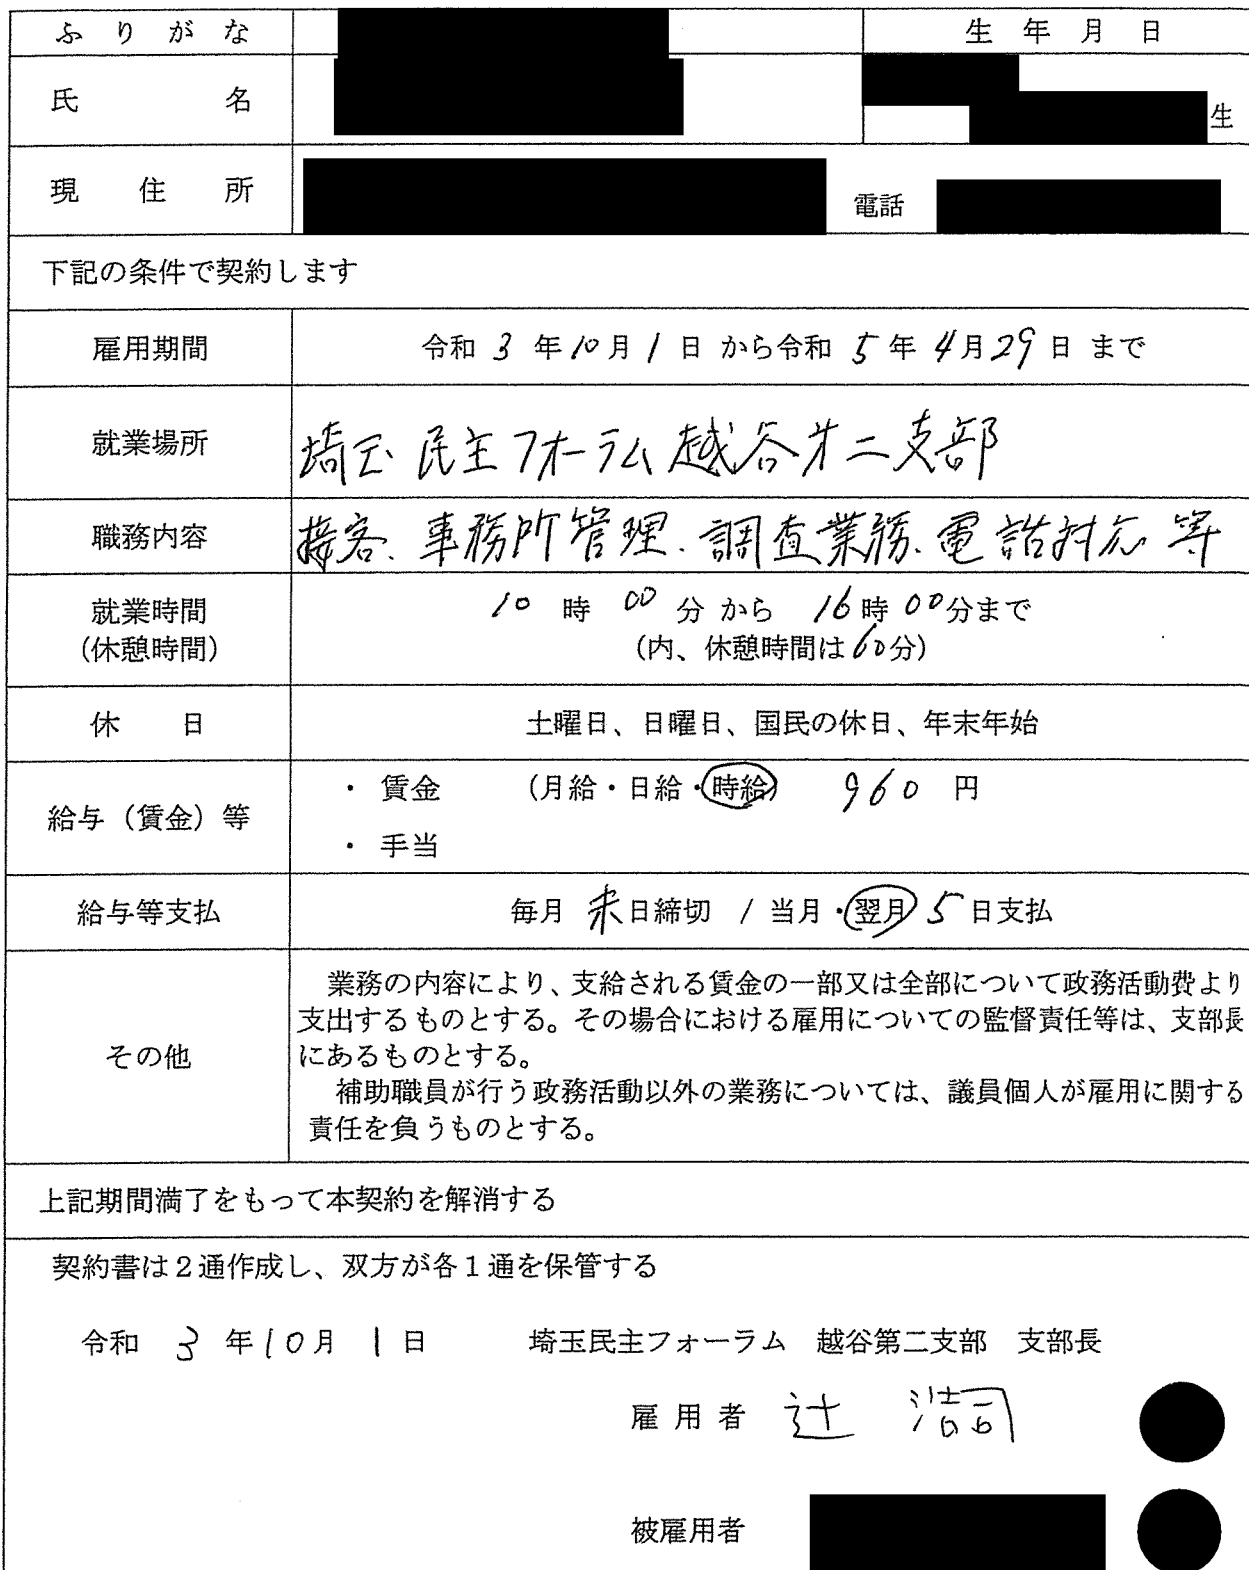 ふりがな
生年月日
氏名
生
現住所
電話
下記の条件で契約します
雇用期間
令和 3 年 10 月 1 日 から令和 5 年 4 月 29 日 まで
就業場所
埼玉民主フォーラム越谷才二支部
職務内容
接客、事務所管理、調査業務、電話対応 等
就業時間
(休憩時間)
10 時 00 分 から 16 時 00 分まで
(内、休憩時間は 60 分)
休日
土曜日、日曜日、国民の休日、年末年始
給与（賃金）等
・ 賃金 (月給・日給・時給) 960 円
・ 手当
給与等支払
毎月 末日締切 / 当月・翌月 5 日支払
その他
業務の内容により、支給される賃金の一部又は全部について政務活動費より
支出するものとする。その場合における雇用についての監督責任等は、支部長
にあるものとする。
補助職員が行う政務活動以外の業務については、議員個人が雇用に関する
責任を負うものとする。
上記期間満了をもって本契約を解消する
契約書は２通作成し、双方が各１通を保管する
令和 3 年 10 月 1 日 埼玉民主フォーラム 越谷第二支部 支部長
雇用者 辻 浩司
被雇用者